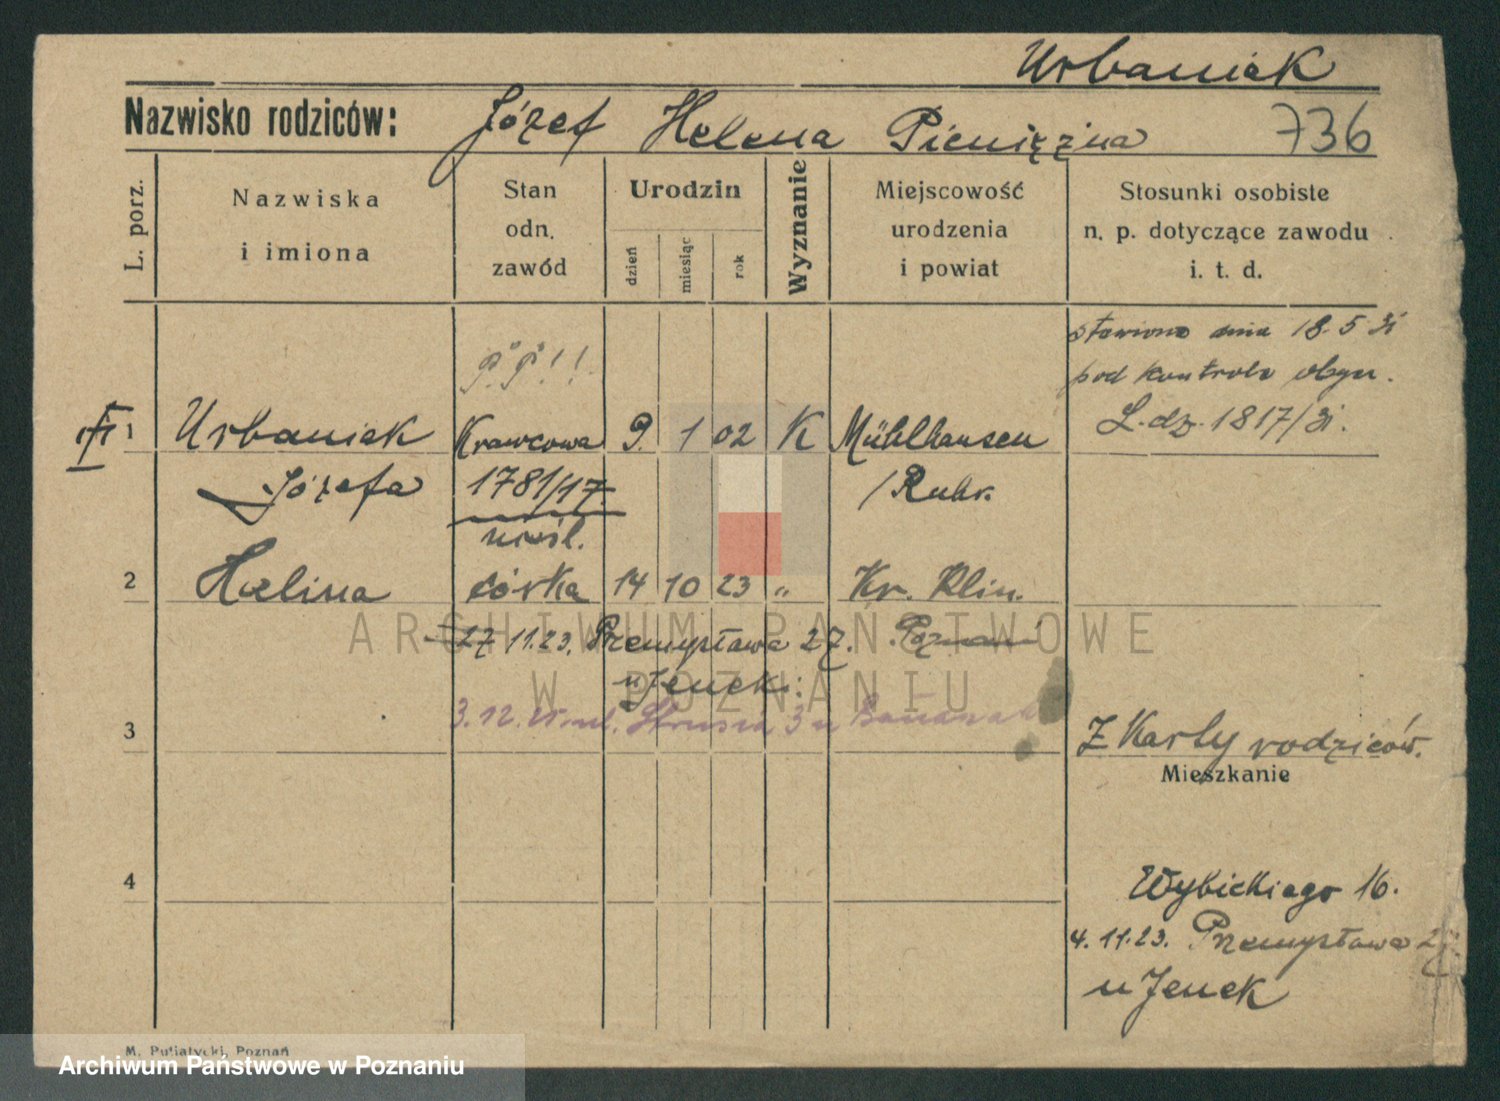 Urbaniak
Nazwisko rodziców: Józef Helena Pieniężna 736
L. porz.
Nazwiska i imiona
Stan odn. zawód
Urodzin
dzień miesiąc rok
Wyznanie
Miejscowość urodzenia i powiat
Stosunki osobiste n. p. dotyczące zawodu i. t. d.
stawiono dnia 18.5 31
pod kontrolę obycz.
L.dz. 1817/31.
1 Urbaniak Krawcowa 9. 1 02 K Mühlhausen
Józefa 1781/17. /Ruhr.
nieśl.
2 Halina córka 14 10 23 " Kr. Klin.
27 11.23. Przemysława 27. Poznań
u Jenek:
3.12. Strusia 3 u
3
Z Karty rodziców.
Mieszkanie
4
Wybickiego 16.
4.11.23. Przemysława 27
u Jenek
M. Putiatycki, Poznań
ARCHIWUM PAŃSTWOWE
W POZNANIU
Archiwum Państwowe w Poznaniu